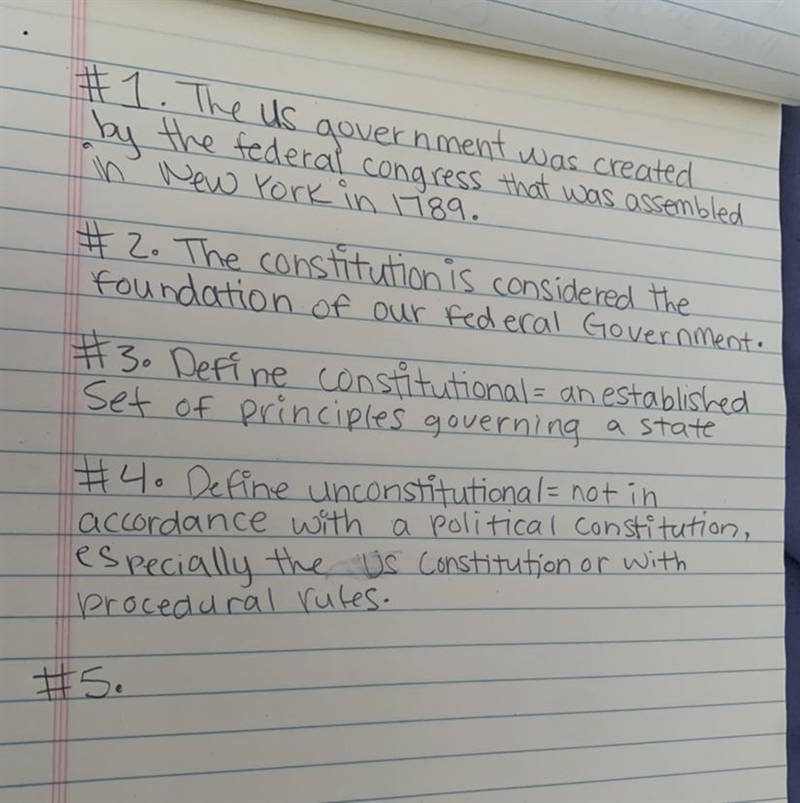 #1. The US government was created
by the federal congress that was assembled
in New York in 1789.
#2. The constitution is considered the
foundation of our federal Government.
#3. Define constitutional = an established
Set of principles governing a state
#4. Define unconstitutional = not in
accordance with a political constitution,
especially the US Constitution or with
procedural rules.
#5.